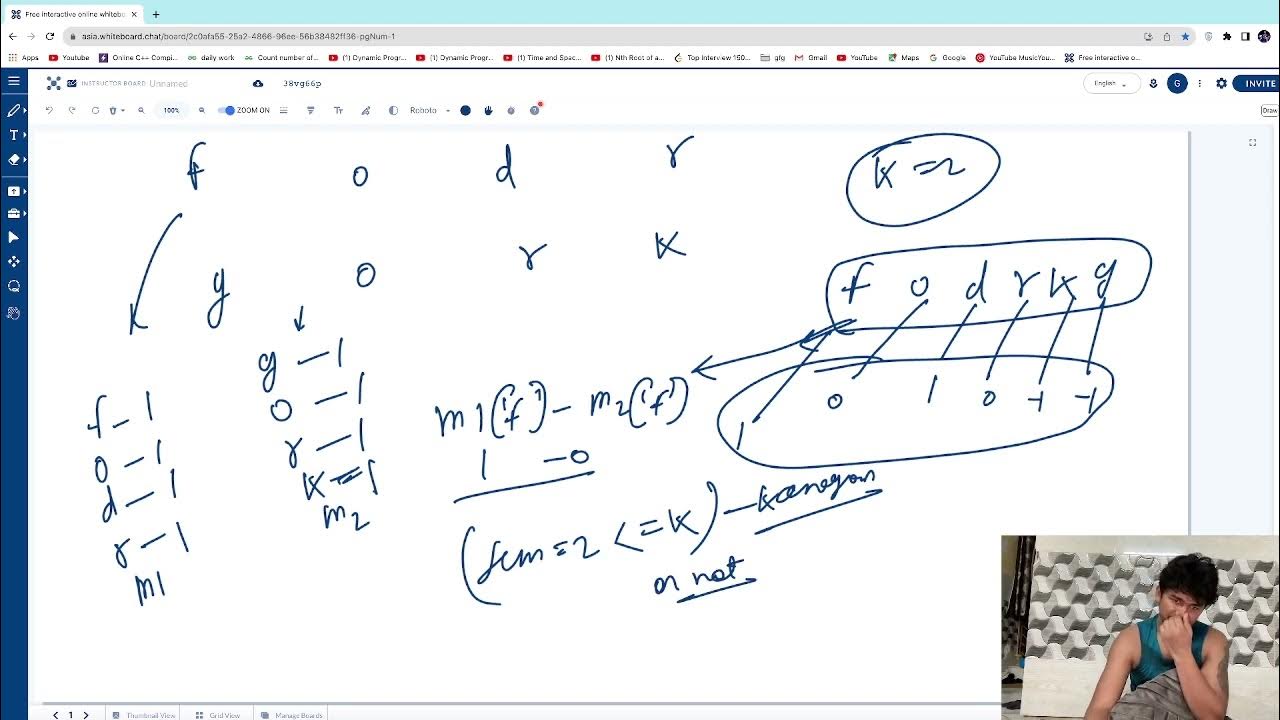 Free interactive online whitebo
asia.whiteboard.chat/board/2c0afa55-25a2-4866-96ee-56b38482ff36-pgNum-1
Apps Youtube Online C++ Compi... daily work Count number of... (1) Dynamic Progr... (1) Dynamic Progr... (1) Time and Spac... (1) Nth Root of a... Top Interview 150... gfg Gmail YouTube Maps Google YouTube MusicYou... Free interactive o...
INSTRUCTOR BOARD Unnamed 38vg66p English G INVITE
100% ZOOM ON Roboto Draw
f o d r K=2
g o r K
f o d r K g
1 0 1 0 -1 -1
g-1
o-1
r-1
K-1
m2
f-1
o-1
d-1
r-1
m1
m1('f')-m2('f')
1 -0
(sum=2<=K)-Kanagram
or not
1 Thumbnail View Grid View Manage Boards